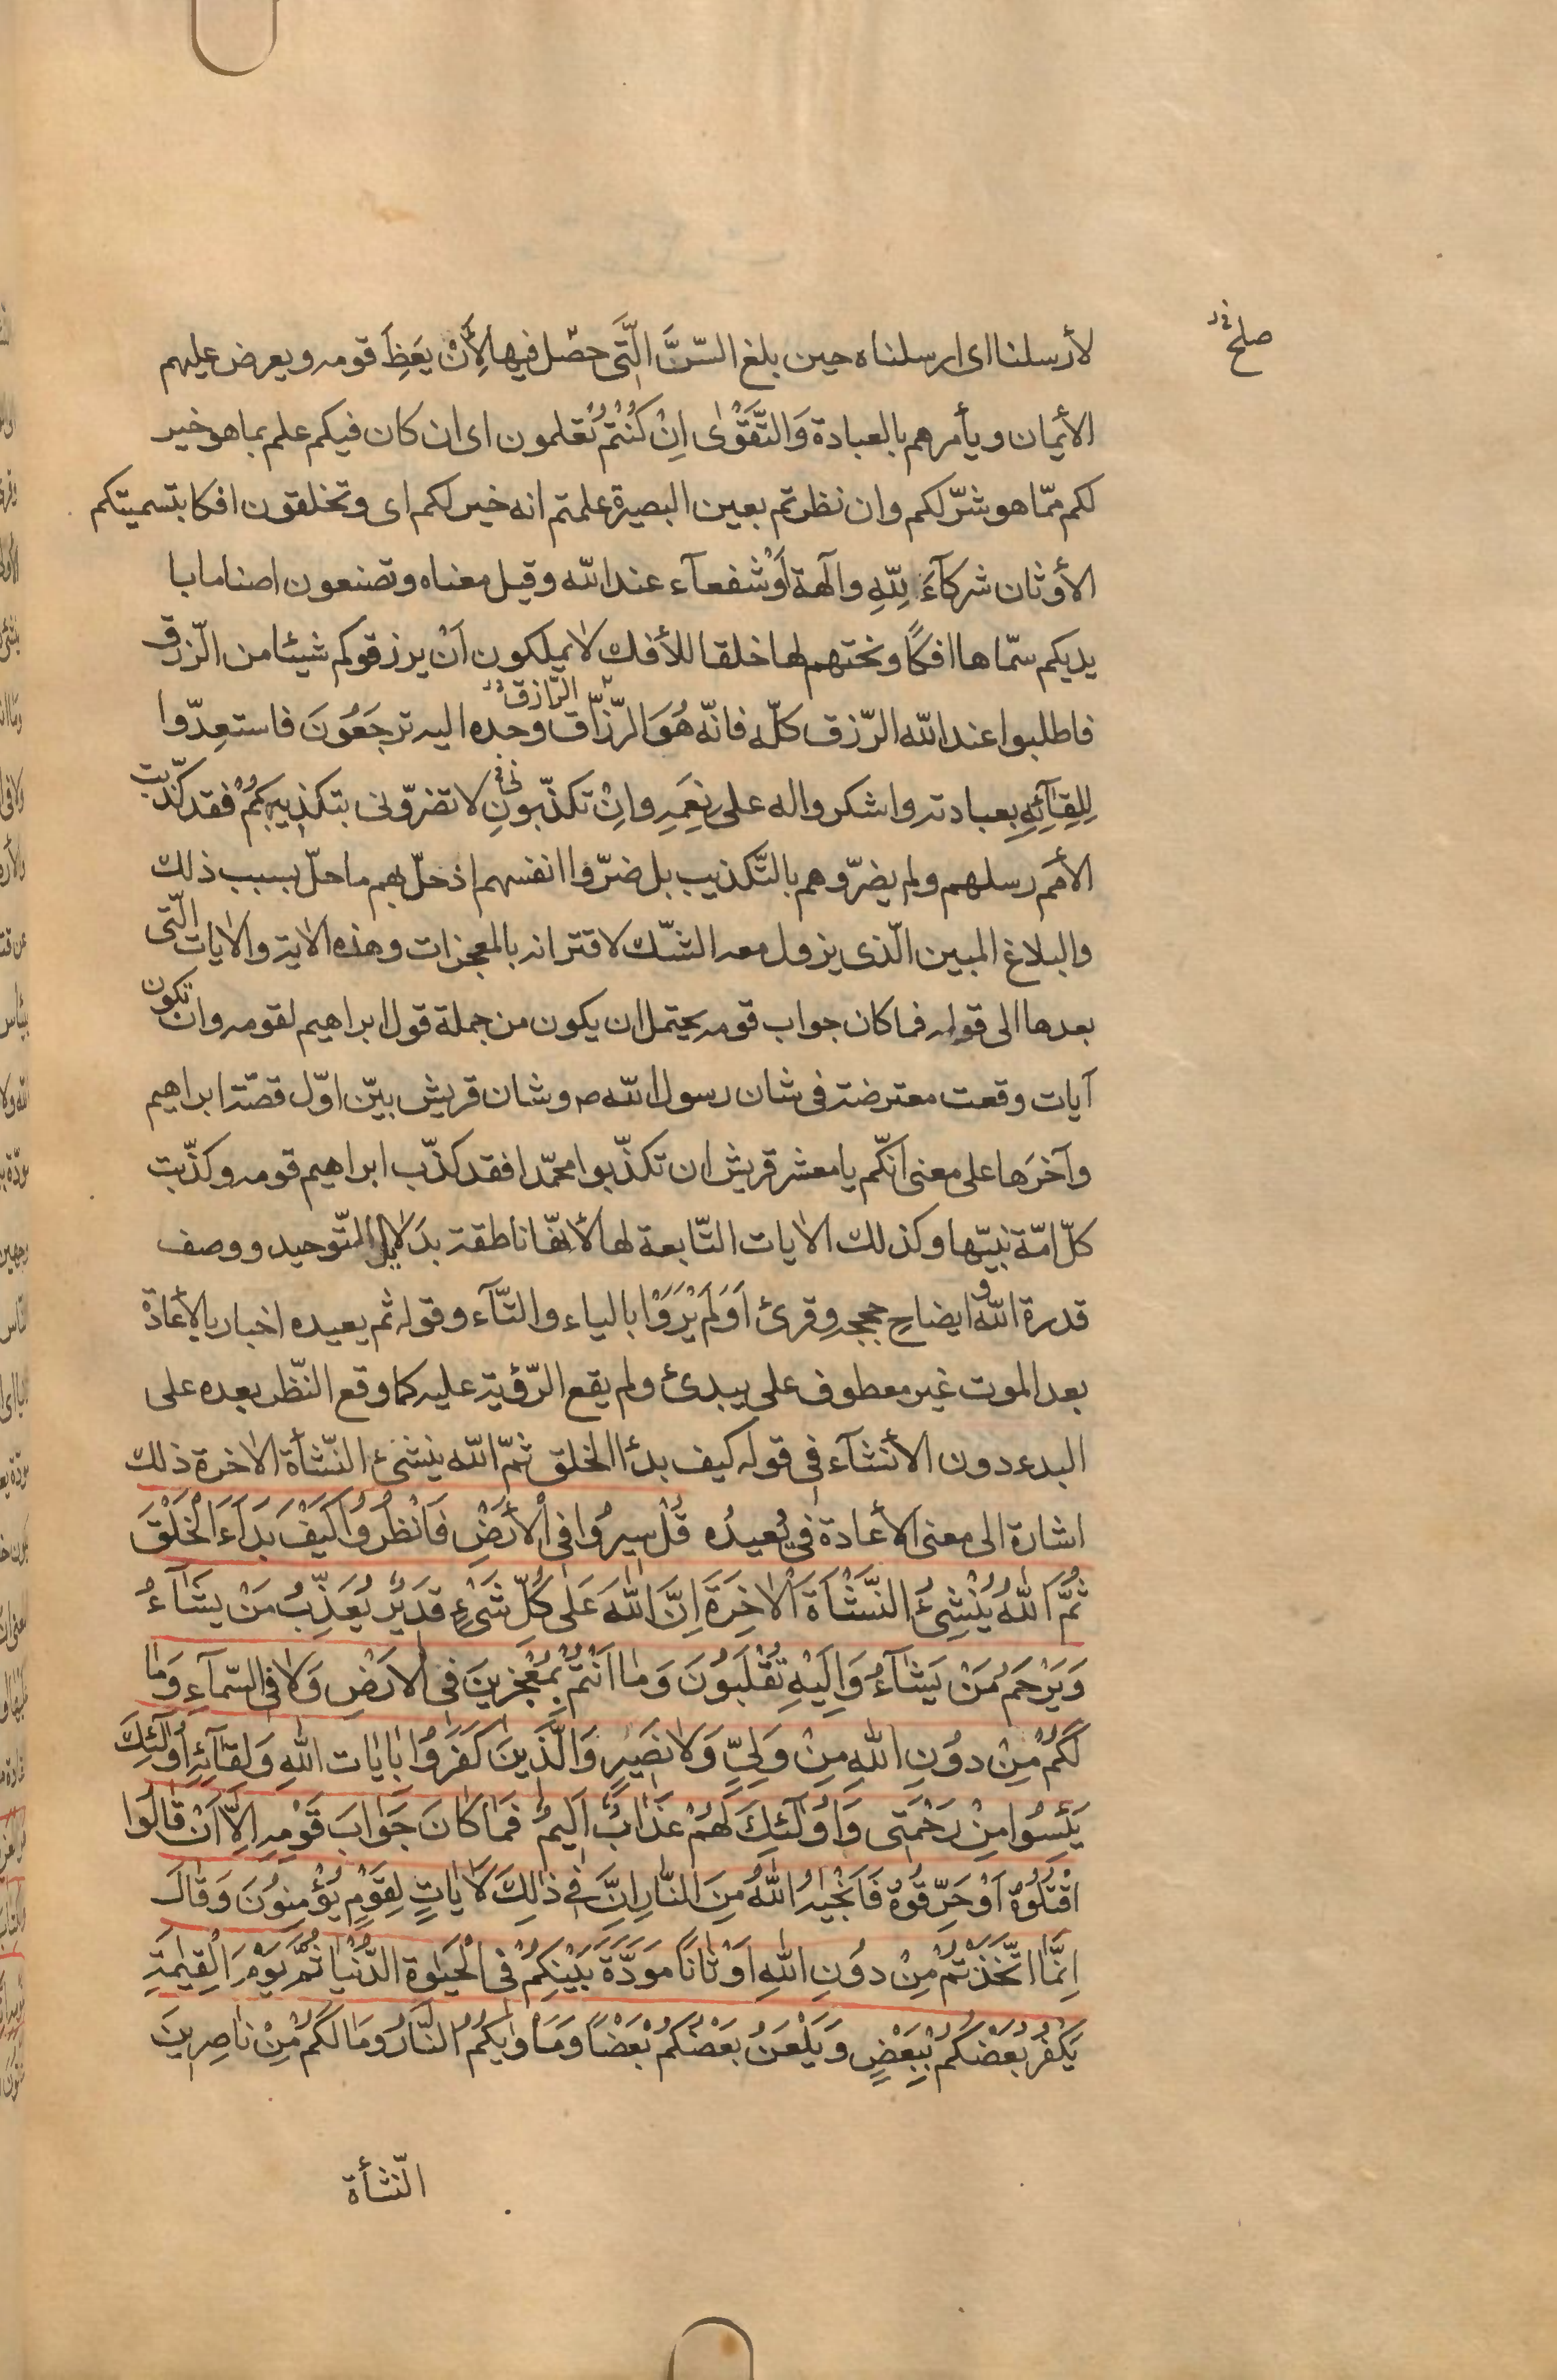 صلح
لأرسلنا اى ارسلناه حين بلغ السّنّ الّتى حصّل فيها لِأَنْ يَعِظَ قومه ويعرض عليهم
الأيمان ويأمرهم بالعبادة وَالتَّقْوٰى اِنْ كُنْتُمْ تَعْلمون اى ان كان فيكم علم بما هو خير
لكم ممّا هو شرّ لكم وان نظرتم بعين البصيرة علمتم انه خير لكم اى وتخلقون افكا بتسميتكم
الأوثان شركآءَ لِلّهِ وآلهة أَوْ شفعآء عند اللّه وقيل معناه وتصنعون اصناما با
يديكم سمّاها افكًا ونحتهم لها خلقا للأفك لا يملكون اَنْ يرزقوكم شيئا من الرّزق
فاطلبوا عند اللّه الرّزق كلّه فانّه هُوَ الرّزّاق وحده اليه ترجَعُونَ فاستعِدّوا
الرّازق
لِلِقآئِهِ بعبادته واشكروا له على نِعَمِهِ وانْ تكذّبونِ لا تضرّونى بتكذيبِكمُ فقد كذّبت
الأمَم رسلهم ولم يضرّوهم بالتّكذيب بل ضرّوا انفسهم اذ حلّ بهم ما حلّ بسبب ذلك
والبلاغ المبين الّذى يزول معه الشّك لاقترانه بالمعجزات وهذه الاية والايات الّتى
بعدها الى قوله فما كان جواب قومه يحتمل ان يكون من جملة قول ابراهيم لقومه وان تكون
آيات وقعت معترضة فى شان رسول اللّه ص وشان قريش بيّن اوّل قصّة ابراهيم
وآخرَها على معنى انّكم يا معشر قريش ان تكذّبوا محمّدا فقد كذّب ابراهيم قومه وكذّبت
كلّ امّة نبيّها وكذلك الايات التّابعة لها لأنّها ناطقة بدَلايل التّوحيد ووصف
قدرة اللّه وايضاح حججه وقرئ اَوَلَمْ يَرَوْا بالياء والتّآء وقوله ثم يعيده اخبار بالأعادة
بعد الموت غير معطوف على يبدئ ولم يقع الرّؤية عليه كما وقع النّظر بعده على
البدء دون الأنشآء فى قوله كيف بدأ الخلق ثمّ اللّه ينشئ النّشأة الاخرة ذلك
اشارة الى معنى الأعادة فى يُعيدُه قُلْ سِيرُوا فى الْأَرْضِ فَانْظُرُوا كَيْفَ بَدَأَ الْخَلْقَ
ثُمَّ اللّهُ يُنْشِئُ النَّشْأَةَ الْاخِرَةَ اِنَّ اللّهَ عَلٰى كُلِّ شَىْءٍ قَديرٌ يُعَذِّبُ مَنْ يَشآءُ
وَيَرْحَمُ مَنْ يَشآءُ وَاِلَيْهِ تُقْلَبُونَ وَما اَنْتُمْ بِمُعْجِزينَ فى الْارَضِ وَلا فى السّمآءِ وَمٰا
لَكُمْ مِنْ دوُنِ اللّهِ مِنْ وَلِىٍّ وَلا نَصيرٍ وَالَّذينَ كَفَرُوا باٰيات اللّهِ وَلِقآئِهِ اُولٰئِكَ
يَئِسُوا مِنْ رَحْمَتى وَاُولٰئِكَ لَهُمْ عَذابٌ اَليمٌ فَمٰا كٰانَ جَوٰابَ قَوْمِهِ اِلّا اَنْ قٰالُوا
اقْتُلُوهُ اَوْ حَرِّقُوهُ فَاَنْجٰيهُ اللّهُ مِنَ النّٰارِ اِنَّ فى ذٰلِكَ لَاٰياتٍ لِقَوْمٍ يُؤْمِنوُنَ وَقٰالَ
اِنَّمَا اتَّخَذْتُمْ مِنْ دوُنِ اللّهِ اَوْثٰانًا مَوَدَّةَ بَيْنِكِمُ فى الْحَيٰوةِ الدُّنْيٰا ثُمَّ يَوْمَ الْقِيٰمَةِ
يَكْفُرُ بَعْضُكُمْ بِبَعْضٍ وَيَلْعَنُ بَعْضُكُمْ بَعْضًا وَمَأْوٰيكُمُ النّٰارُ وَمٰا لَكُمْ مِنْ ناصِرينَ
النّشأة